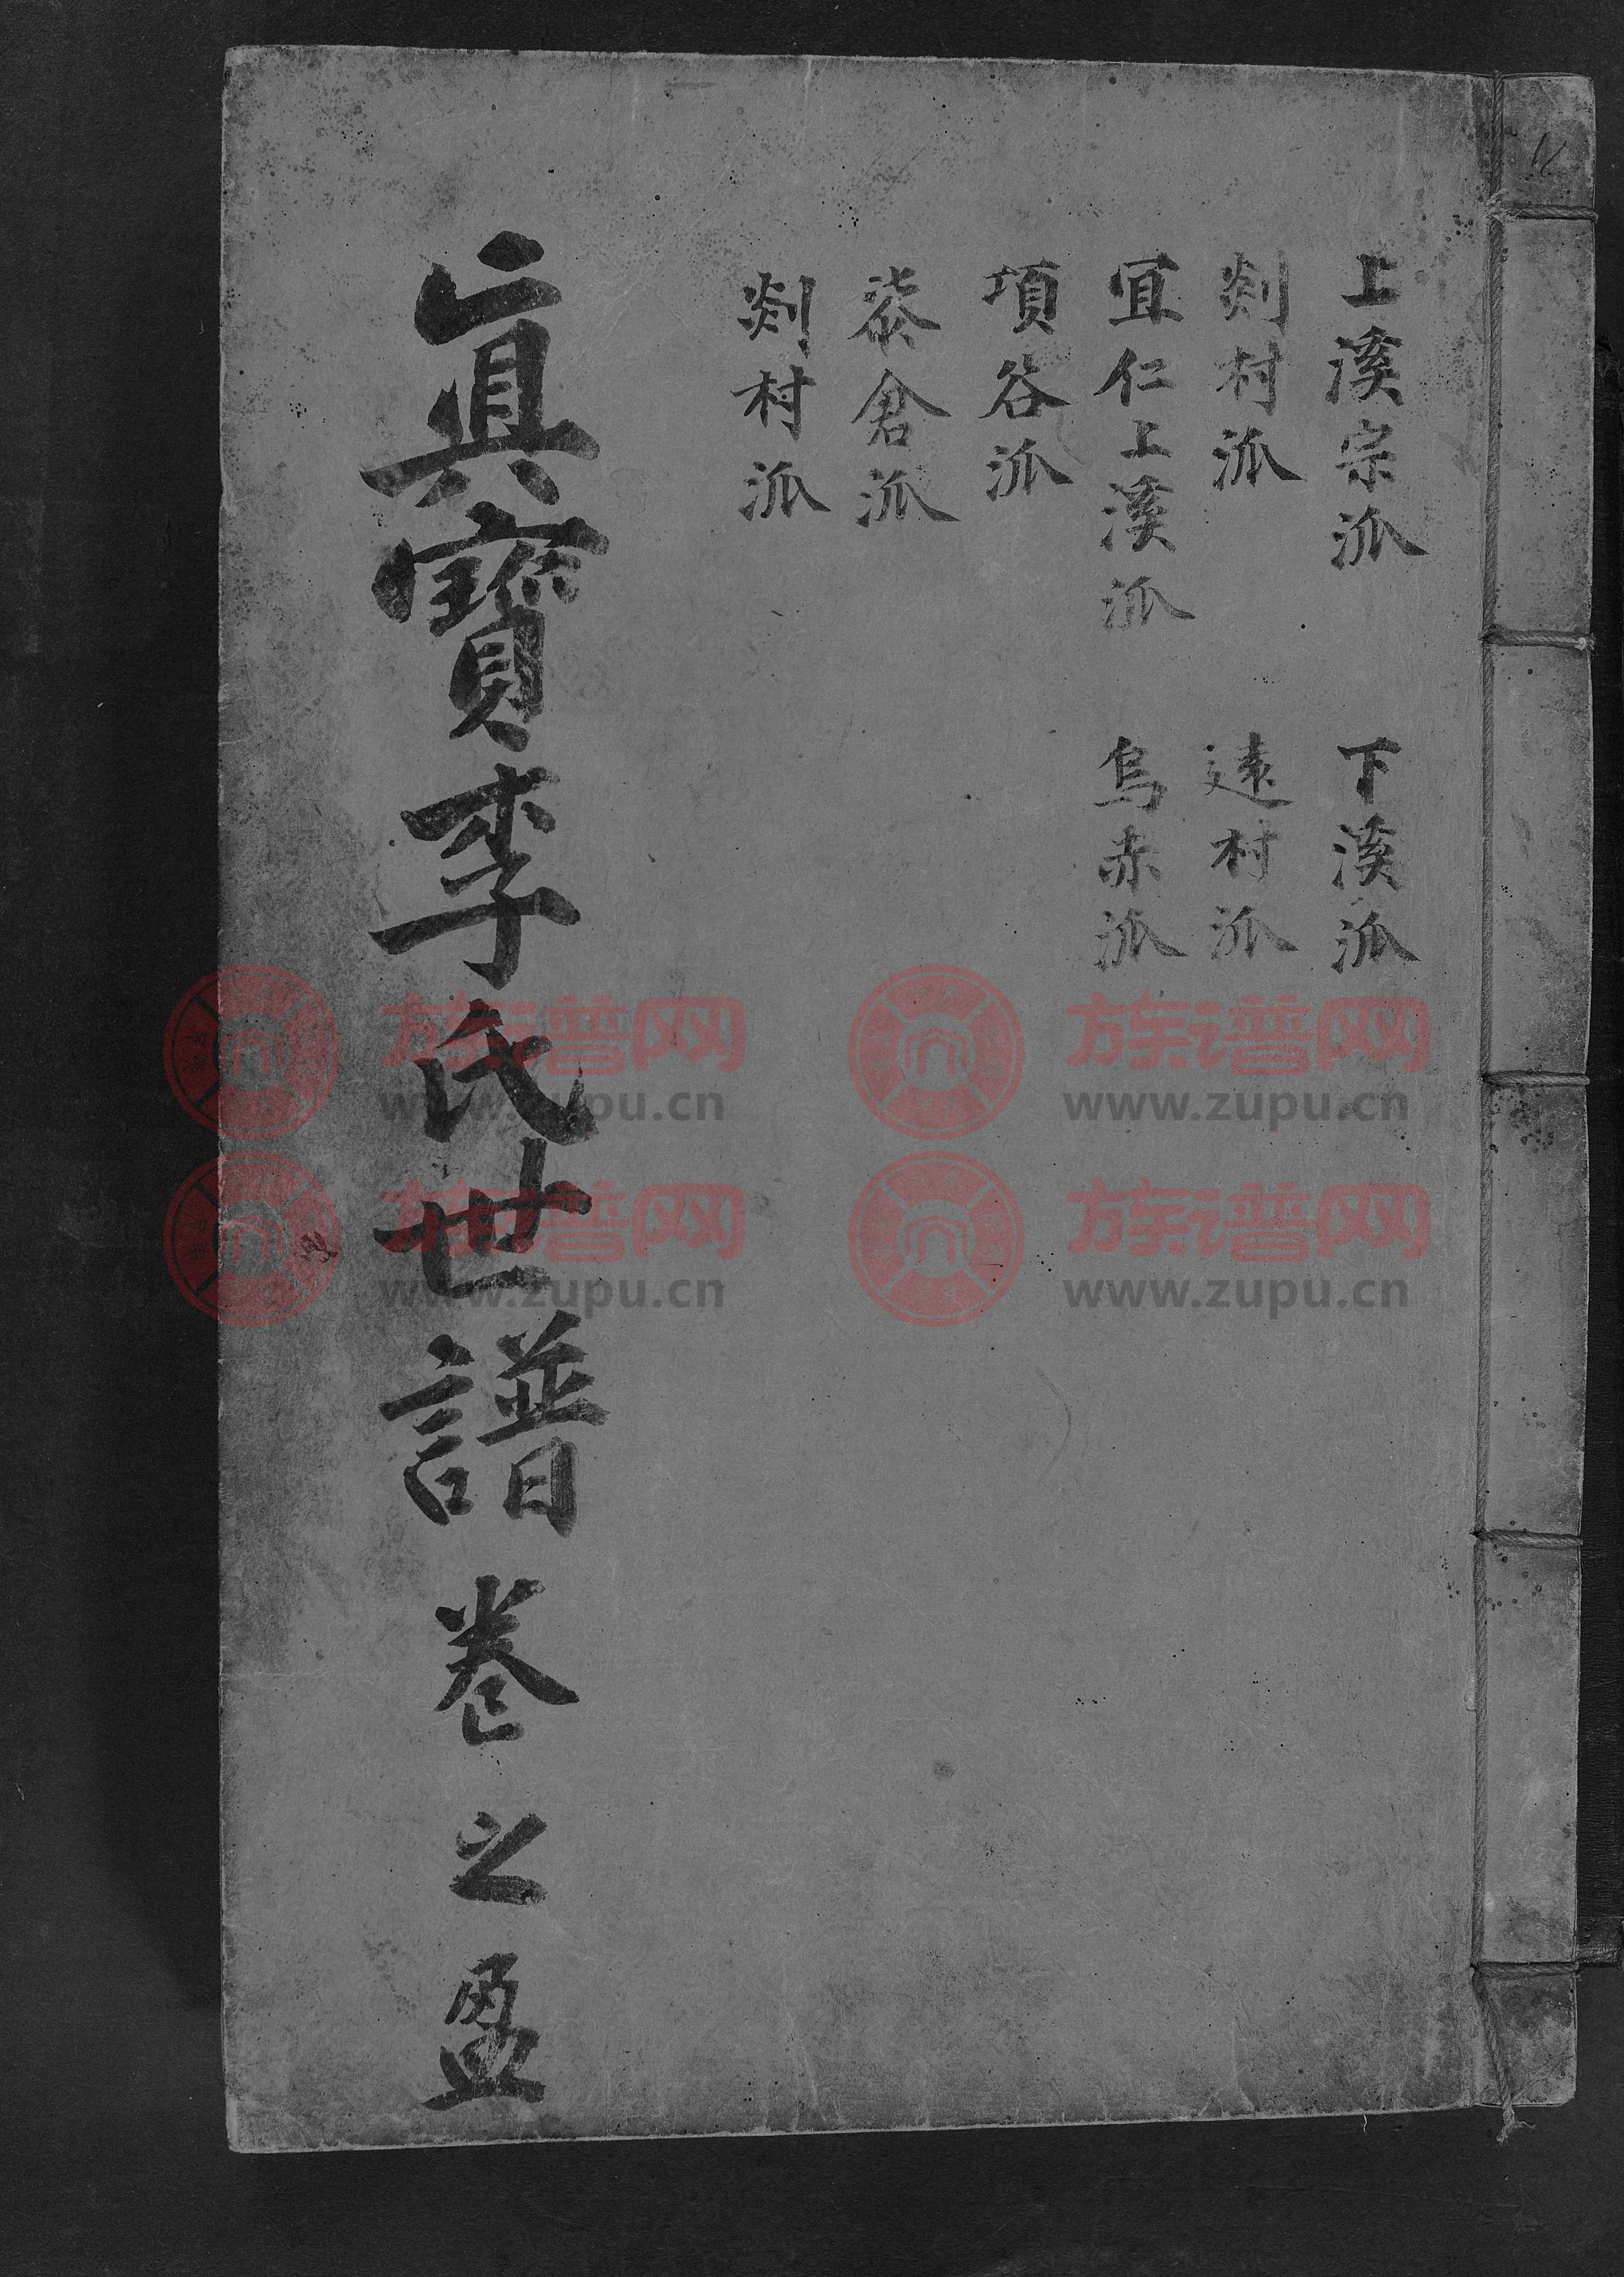 上溪宗派
下溪派
剡村派
遠村派
宜仁上溪派
烏赤派
項谷派
倉派
剡村派
眞寶李氏世譜卷之盈
族谱网
www.zupu.cn
族谱网
www.zupu.cn
族谱网
www.zupu.cn
族谱网
www.zupu.cn